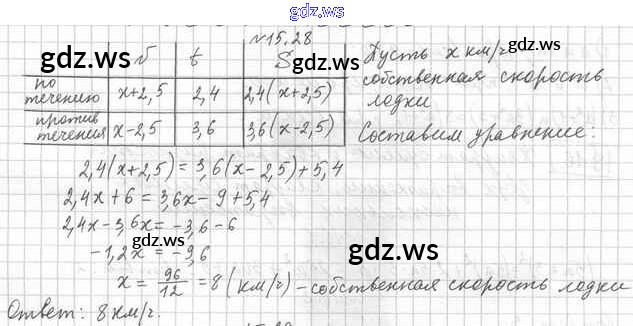 gdz.ws
№15.28
gdz.ws
v t S
gdz.ws
по течению x+2,5 2,4 2,4(x+2,5)
против течения x-2,5 3,6 3,6(x-2,5)
Пусть x км/ч -
собственная скорость
лодки
Составим уравнение:
2,4(x+2,5)=3,6(x-2,5)+5,4
2,4x+6=3,6x-9+5,4
2,4x-3,6x=-3,6-6
gdz.ws
-1,2x=-9,6
gdz.ws
x = 96/12 = 8 (км/ч) - собственная скорость лодки
Ответ: 8 км/ч.
gdz.ws